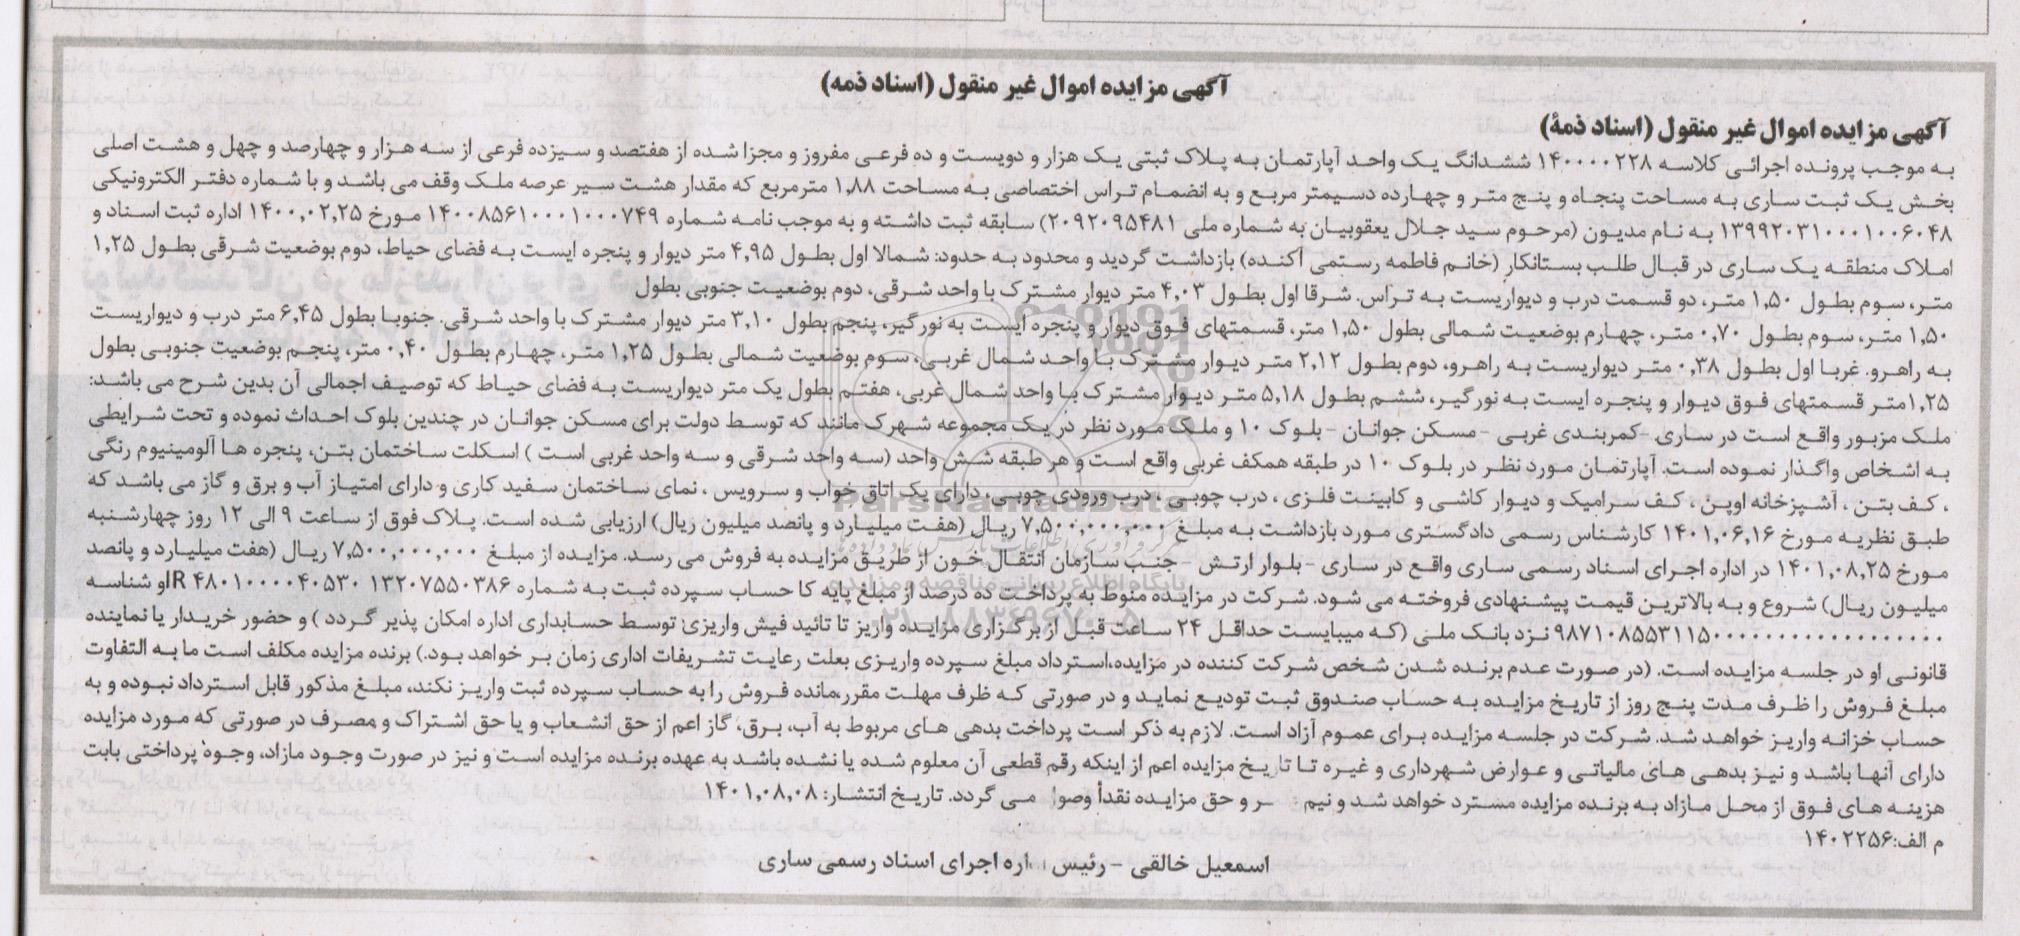 آگهی مزایده اموال غیر منقول (اسناد ذمه)
آگهی مزایده اموال غیر منقول (اسناد ذمهٔ)
به موجب پرونده اجرائی کلاسه ۱۴۰۰۰۰۲۲۸ ششدانگ یک واحد آپارتمان به پلاک ثبتی یک هزار و دویست و ده فرعی مفروز و مجزا شده از هفتصد و سیزده فرعی از سه هزار و چهارصد و چهل و هشت اصلی
بخش یک ثبت ساری به مساحت پنجاه و پنج متر و چهارده دسیمتر مربع و به انضمام تراس اختصاصی به مساحت ۱,۸۸ مترمربع که مقدار هشت سیر عرصه ملک وقف می باشد و با شماره دفتر الکترونیکی
۱۳۹۹۲۰۳۱۰۰۰۱۰۰۶۰۴۸ به نام مدیون (مرحوم سید جلال یعقوبیان به شماره ملی ۲۰۹۲۰۹۵۴۸۱) سابقه ثبت داشته و به موجب نامه شماره ۱۴۰۰۸۵۶۱۰۰۰۱۰۰۰۷۴۹ مورخ ۱۴۰۰,۰۲,۲۵ اداره ثبت اسناد و
املاک منطقه یک ساری در قبال طلب بستانکار (خانم فاطمه رستمی آکنده) بازداشت گردید و محدود به حدود: شمالا اول بطول ۴,۹۵ متر دیوار و پنجره ایست به فضای حیاط، دوم بوضعیت شرقی بطول ۱,۲۵
متر، سوم بطول ۱,۵۰ متر، دو قسمت درب و دیواریست به تراس. شرقا اول بطول ۴,۰۳ متر دیوار مشترک با واحد شرقی، دوم بوضعیت جنوبی بطول
۱,۵۰ متر، سوم بطول ۰,۷۰ متر، چهارم بوضعیت شمالی بطول ۱,۵۰ متر، قسمتهای فوق دیوار و پنجره ایست به نورگیر، پنجم بطول ۳,۱۰ متر دیوار مشترک با واحد شرقی. جنوبا بطول ۶,۴۵ متر درب و دیواریست
به راهرو. غربا اول بطول ۰,۳۸ متر دیواریست به راهرو، دوم بطول ۲,۱۲ متر دیوار مشترک با واحد شمال غربی، سوم بوضعیت شمالی بطول ۱,۲۵ متر، چهارم بطول ۰,۴۰ متر، پنجم بوضعیت جنوبی بطول
۱,۲۵متر قسمتهای فوق دیوار و پنجره ایست به نورگیر، ششم بطول ۵,۱۸ متر دیوار مشترک با واحد شمال غربی، هفتم بطول یک متر دیواریست به فضای حیاط که توصیف اجمالی آن بدین شرح می باشد:
ملک مزبور واقع است در ساری -کمربندی غربی - مسکن جوانان - بلوک ۱۰ و ملک مورد نظر در یک مجموعه شهرک مانند که توسط دولت برای مسکن جوانان در چندین بلوک احداث نموده و تحت شرایطی
به اشخاص واگذار نموده است. آپارتمان مورد نظر در بلوک ۱۰ در طبقه همکف غربی واقع است و هر طبقه شش واحد (سه واحد شرقی و سه واحد غربی است ) اسکلت ساختمان بتن، پنجره ها آلومینیوم رنگی
، کف بتن ، آشپزخانه اوپن ، کف سرامیک و دیوار کاشی و کابینت فلزی ، درب چوبی ، درب ورودی چوبی، دارای یک اتاق خواب و سرویس ، نمای ساختمان سفید کاری و دارای امتیاز آب و برق و گاز می باشد که
طبق نظریه مورخ ۱۴۰۱,۰۶,۱۶ کارشناس رسمی دادگستری مورد بازداشت به مبلغ ۷,۵۰۰,۰۰۰,۰۰۰ ریال (هفت میلیارد و پانصد میلیون ریال) ارزیابی شده است. پلاک فوق از ساعت ۹ الی ۱۲ روز چهارشنبه
مورخ ۱۴۰۱,۰۸,۲۵ در اداره اجرای اسناد رسمی ساری واقع در ساری - بلوار ارتش - جنب سازمان انتقال خون از طریق مزایده به فروش می رسد. مزایده از مبلغ ۷,۵۰۰,۰۰۰,۰۰۰ ریال (هفت میلیارد و پانصد
میلیون ریال) شروع و به بالاترین قیمت پیشنهادی فروخته می شود. شرکت در مزایده منوط به پرداخت ده درصد از مبلغ پایه کا حساب سپرده ثبت به شماره IR ۴۸۰۱۰۰۰۰۴۰۵۳۰ ۱۳۲۰۷۵۵۰۳۸۶او شناسه
۹۸۷۱۰۸۵۵۳۱۱۵۰۰۰۰۰۰۰۰۰۰۰۰۰۰۰۰۰ نزد بانک ملی (که میبایست حداقل ۲۴ ساعت قبل از برگزاری مزایده واریز تا تائید فیش واریزی توسط حسابداری اداره امکان پذیر گردد ) و حضور خریدار یا نماینده
قانونی او در جلسه مزایده است. (در صورت عدم برنده شدن شخص شرکت کننده در مزایده،استرداد مبلغ سپرده واریزی بعلت رعایت تشریفات اداری زمان بر خواهد بود.) برنده مزایده مکلف است ما به التفاوت
مبلغ فروش را ظرف مدت پنج روز از تاریخ مزایده به حساب صندوق ثبت تودیع نماید و در صورتی که ظرف مهلت مقرر،مانده فروش را به حساب سپرده ثبت واریز نکند، مبلغ مذکور قابل استرداد نبوده و به
حساب خزانه واریز خواهد شد. شرکت در جلسه مزایده برای عموم آزاد است. لازم به ذکر است پرداخت بدهی های مربوط به آب، برق، گاز اعم از حق انشعاب و یا حق اشتراک و مصرف در صورتی که مورد مزایده
دارای آنها باشد و نیز بدهی های مالیاتی و عوارض شهرداری و غیره تا تاریخ مزایده اعم از اینکه رقم قطعی آن معلوم شده یا نشده باشد به عهده برنده مزایده است و نیز در صورت وجود مازاد، وجوه پرداختی بابت
هزینه های فوق از محل مازاد به برنده مزایده مسترد خواهد شد و نیم و حق مزایده نقداً وصول می گردد. تاریخ انتشار: ۱۴۰۱,۰۸,۰۸
م الف:۱۴۰۲۲۵۶
اسمعیل خالقی - رئیس اداره اجرای اسناد رسمی ساری
ParsNamadData
پایگاه اطلاع رسانی مناقصه و مزایده